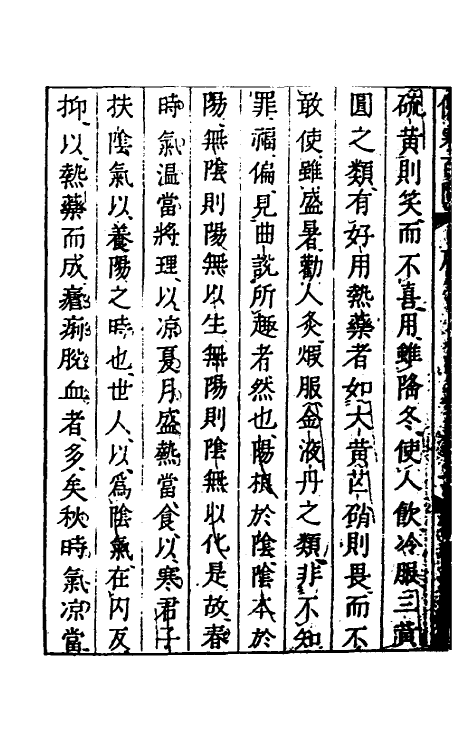 硫黃則笑而不喜用雖隆冬使人飲冷服三黃
圓之類有好用熱藥者如大黃芒硝則畏而不
敢使雖盛暑勸人灸煆服金液丹之類非不知
罪福偏見曲說所趣者然也陽根於陰陰本於
陽無陰則陽無以生無陽則陰無以化是故春
時氣温當將理以凉夏月盛熱當食以寒君子
扶陰氣以養陽之時也世人以爲陰氣在内反
抑以熱藥而成瘧痢脫血者多矣秋時氣凉當